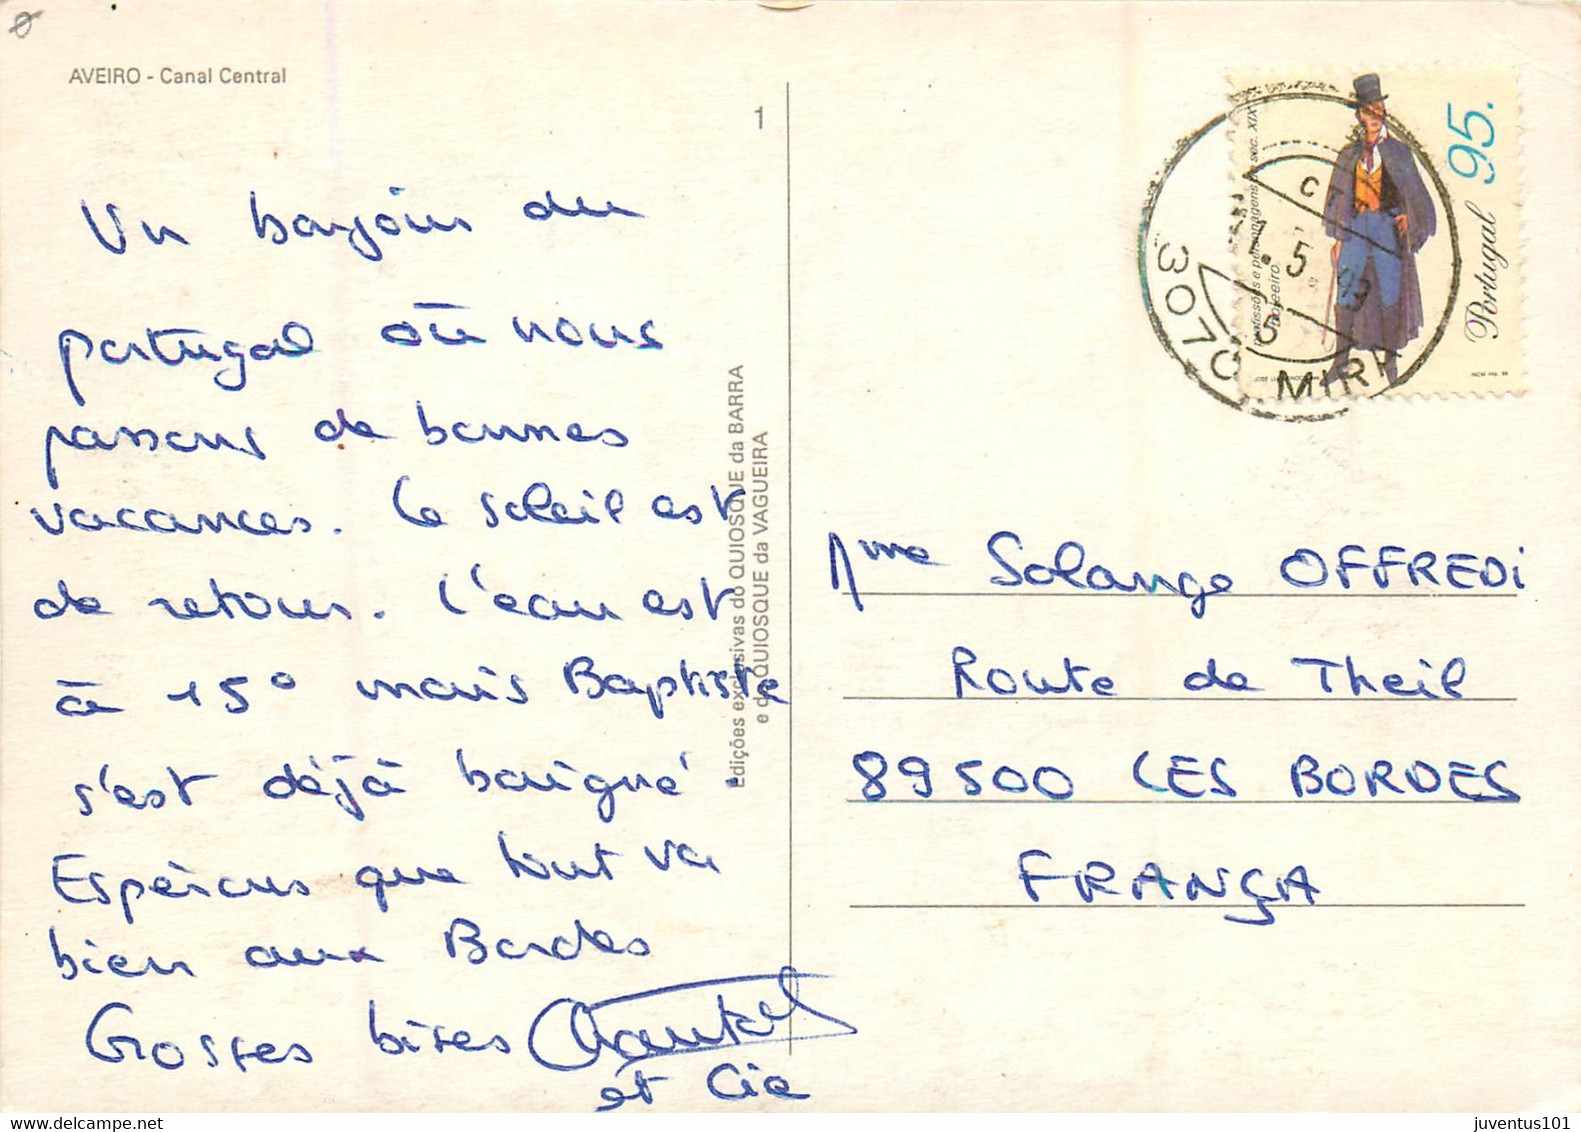 AVEIRO - Canal Central
1
Un bonjour du
portugal où nous
passons de bonnes
vacances. Le soleil est
de retour. L'eau est
à 15° mais Baptiste
s'est déjà baigné.
Espérons que tout va
bien aux Bordes
Grosses bises Chantal
et Cie
Edições exclusivas do QUIOSQUE da BARRA
e do QUIOSQUE da VAGUEIRA
Portugal 95.
3070 MIRA
Mme Solange OFFREDi
Route de Theil
89500 LES BORDES
FRANÇA
juventus101